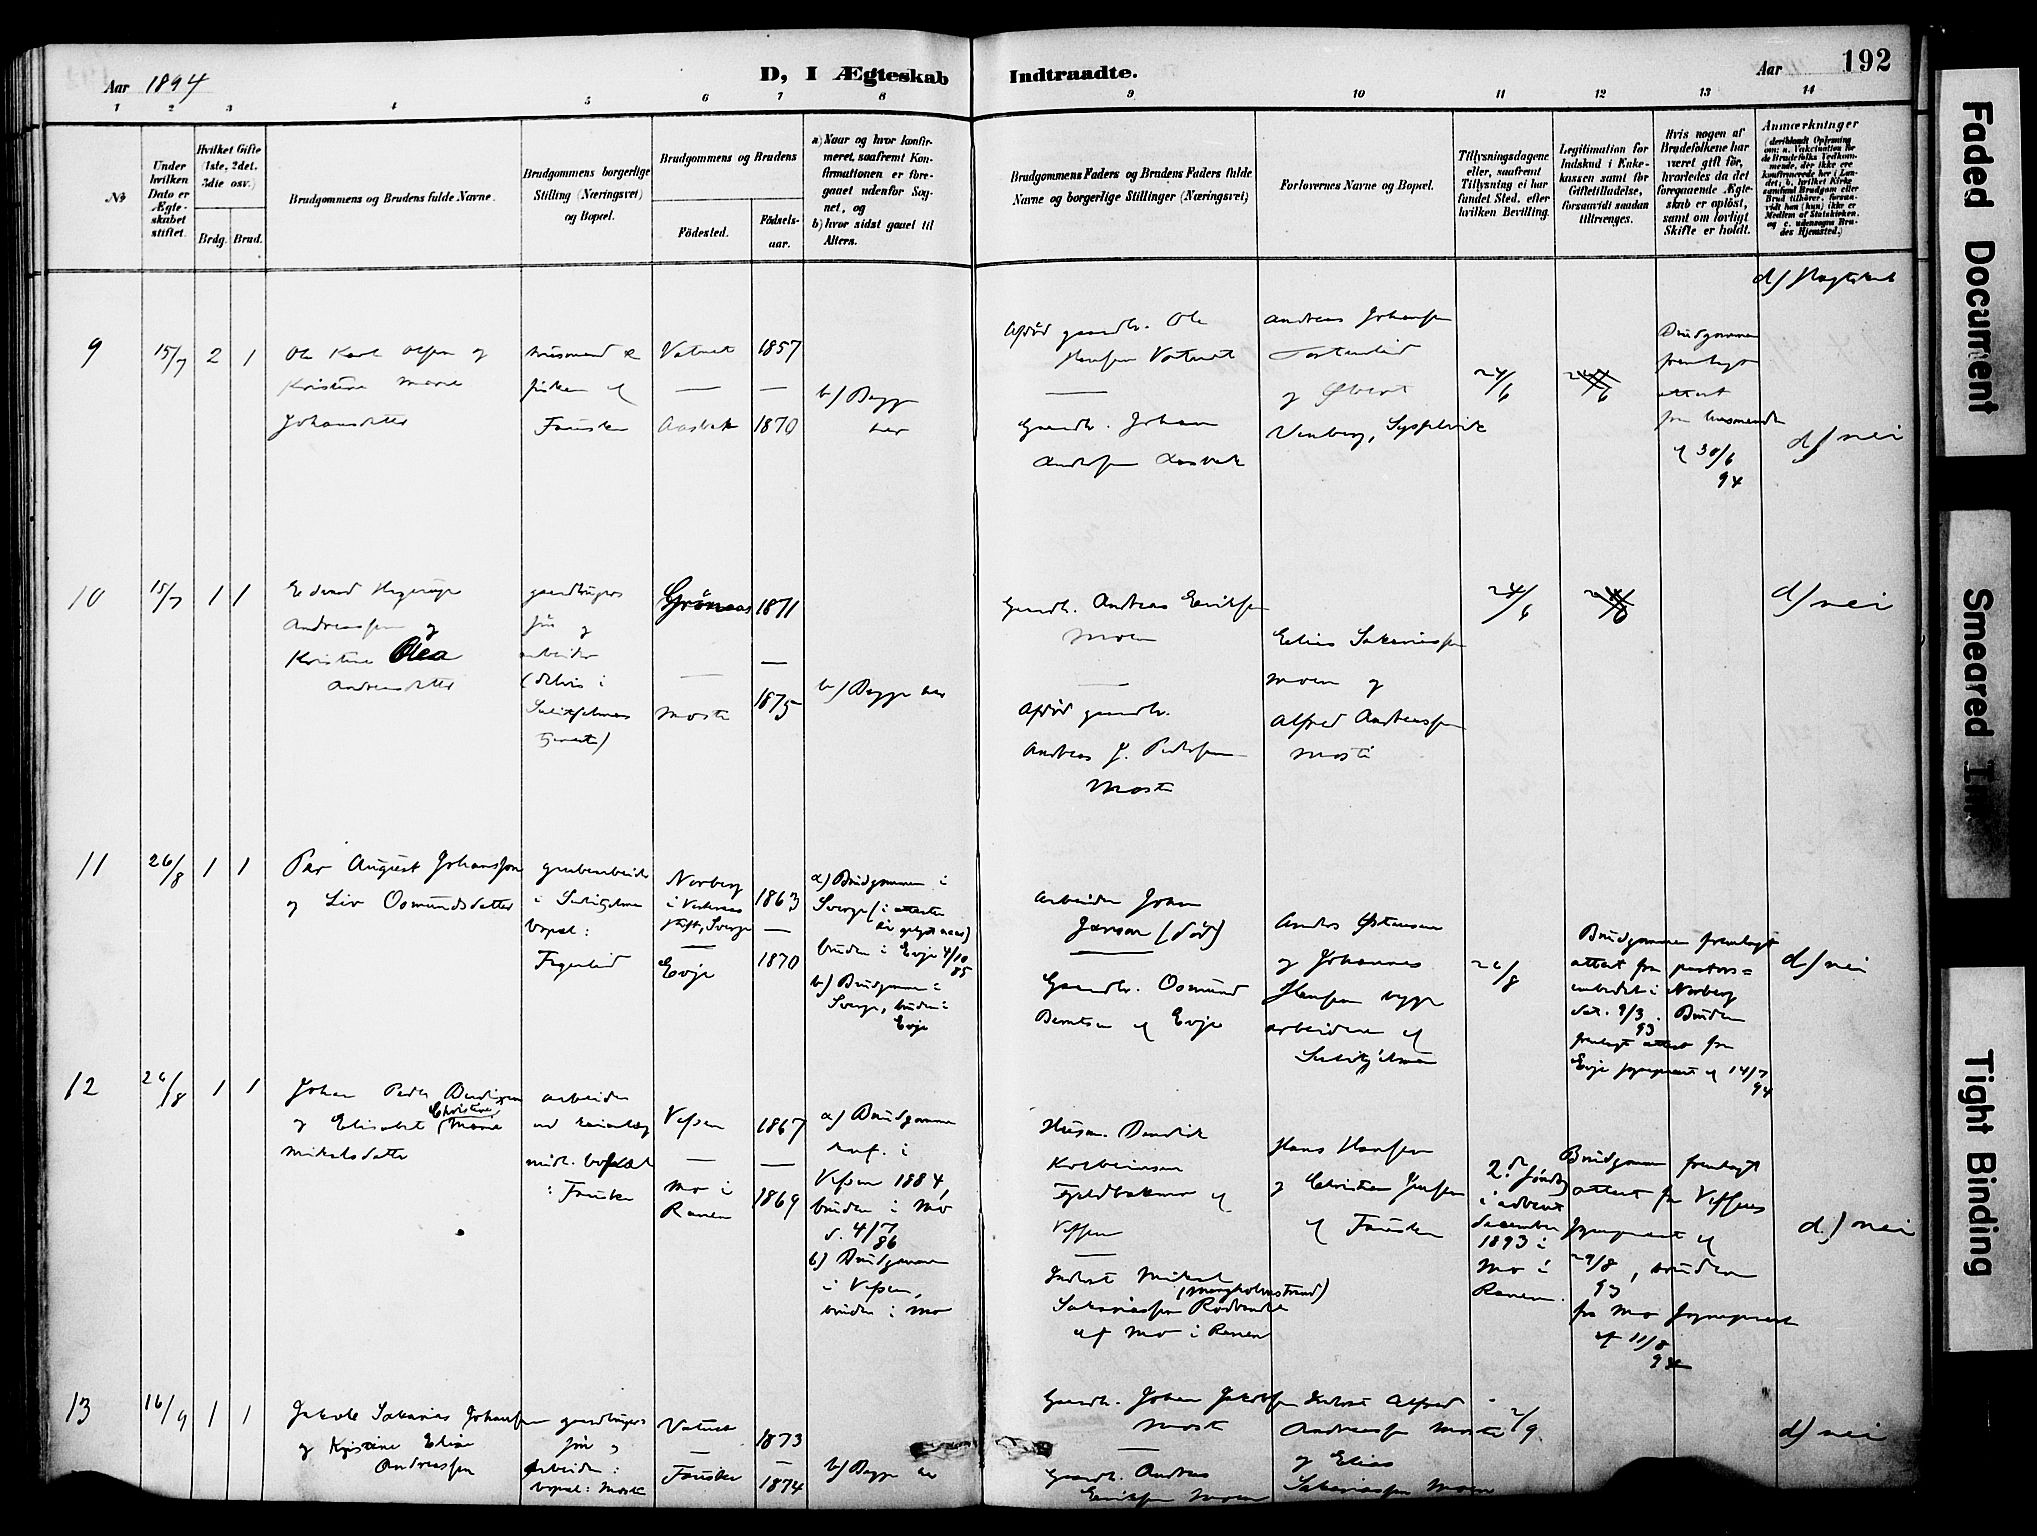 Aar 1894
D, I Ægteskab Indtraadte.
Aar
192
1 2 3 4 5 6 7 8 9 10 11 12 13 14
No
Under hvilken Dato er Ægteskabet stiftet.
Hvilket Gifte (1ste, 2det, 3die osv.)
Brdg. Brud.
Brudgommens og Brudens fulde Navne.
Brudgommens borgerlige Stilling (Næringsvei) og Bopæl.
Brudgommens og Brudens
Födested.
Födsels-aar.
a) Naar og hvor konfir-
meret, saafremt Kon-
firmationen er fore-
gaaet udenfor Sog-
net, og
b) hvor sidst gaaet til
Alters.
Brudgommens Faders og Brudens Faders fulde
Navne og borgerlige Stillinger (Næringsvei)
Forlovernes Navne og Bopæl.
Tillysningsdagene
eller, saafremt
Tillysning ei har
fundet Sted, efter
hvilken Bevilling.
Legitimation for
Indskud i Enke-
kassen samt for
Giftetilladelse,
forsaavidt saadan
tiltrænges.
Hvis nogen af
Brudefolkene har
været gift för,
hvorledes da det
foregaaende Ægte-
skab er oplöst,
samt om lovligt
Skifte er holdt.
Anmærkninger
d) Slægtskab
9
15/7
2 1
Ole Karl Olsen og
Kristine Marie
Johansdatter
husmand &
fisker af
Fauske
Vatnet
—
Aasbak
1857
—
1870
b) Begge
her
Afdød gaardbr. Ole
Hansen Vatnet
—
Gaardbr. Johan
Andersen Aasbak
Andreas Johansen
og
Venberg,
24/6
24/6
Brudgommen
fremlagt
attest
fra
af 30/6
94
d) nei
10
15/7
1 1
Edvard Hagerup
Andreassen og
Kristine Olea
Andreasdatter
gaardbrugers
søn og
arbeider
(delvis i
Sulitjelmas
tjeneste)
Grönaas
—
Moste
1871
—
1875
b) Begge her
Gaardbr. Andreas Eriksen
Moen
—
Afdød gaardbr.
Andreas J. Pedersen
Moste
Elias Sakariassen
Moen og
Alfred Andreassen
Moste
24/6
d) nei
11
26/8
1 1
Per August Johansson
og Liv Osmundsdatter
grubearbeider
i Sulitjelma
bopæl:
Fagerlid
Norberg
i Vesteraas
stift, Sverge
—
Evje
1863
—
1870
a) Brudgommen i
Sverge (i attesten
ei oplyst naar)
bruden i Evje 4/10
85
b) Brudgommen i
Sverge, bruden i
Evje
Arbeider Johan
Jansson (död)
—
Gaardbr. Osmund
Berntsen af Evje
Anders
og Johannes
Hansen begge
arbeidere af
Sulitjelma
26/8
Brudgommen fremlagt
attest fra pastors=
embedet i Norberg
dat. 9/3 93. Bruden
fremlagt attest fra
Evje sogneprest af 14/7
94
d) nei
12
26/8
1 1
Johan Peder Bendiksen
og Elisabet Christine Marie
Mikalsdatter
arbeider
ved
midl. bosat
: Fauske
Vefsen
—
Mo i
Ranen
1867
—
1869
a) Brudgommen
konf. i
Vefsen 1884,
bruden i Mo
d. 4/7
86
b) Brudgommen
i Vefsen,
bruden i Mo
Husm. Bendik
Fjeldbakmo af
Vefsen
—
Inderst Mikal
(Mangholmstrand)
Sakariassen
af Mo i Ranen
Hans Hansen
og Christian Jensen
af Fauske
2. söndag
i advent
december
1893 i
Mo i
Ranen.
Brudgommen fremlagt
attest fra Vefsens
sogneprest af
29/8 93, bruden
fra Mo sogneprest
af 11/8
94
d.) nei
13
16/9
1 1
Jakob Sakarias Johansen
og Kristine Elise
Andreassen
gaardbrugers
søn,
arbeider:
bopæl: Moste
Vatnet
—
Fauske
1873
—
1874
b) Begge her
Gaardbr. Johan Jakobsen
Moste
—
Gaardbr. Andreas
Eriksen Moen
Inderst Alfred
Andreassen Moste
og Elias
Sakariassen Moen
2/9
d) nei
Faded Document
Smeared Ink
Tight Binding